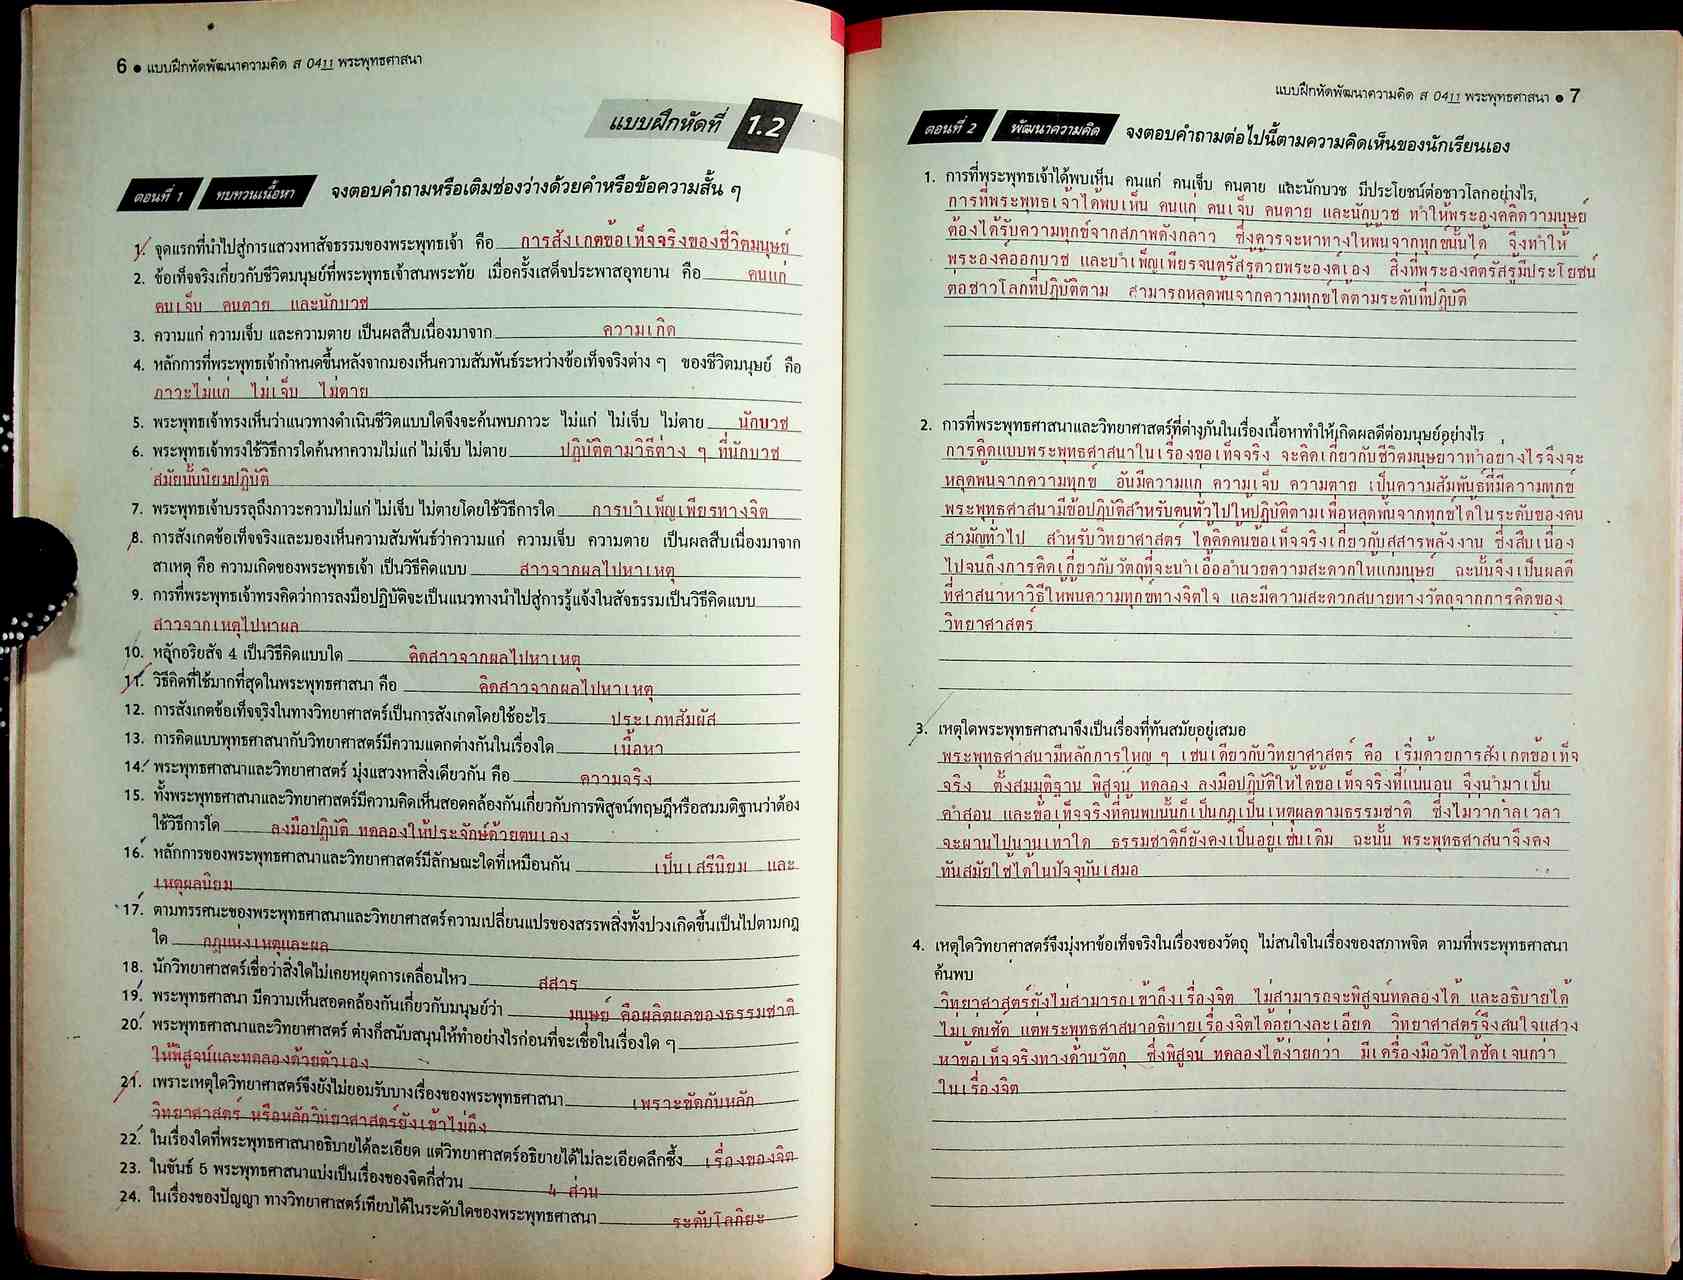 6 ● แบบฝึกหัดพัฒนาความคิด ส 0411 พระพุทธศาสนา
แบบฝึกหัดที่ 1.2
ตอนที่ 1 ทบทวนเนื้อหา จงตอบคำถามหรือเติมช่องว่างด้วยคำหรือข้อความสั้น ๆ
1. จุดแรกที่นำไปสู่การแสวงหาสัจธรรมของพระพุทธเจ้า คือ การสังเกตข้อเท็จจริงของชีวิตมนุษย์
2. ข้อเท็จจริงเกี่ยวกับชีวิตมนุษย์ที่พระพุทธเจ้าสนพระทัย เมื่อครั้งเสด็จประพาสอุทยาน คือ คนแก่
คนเจ็บ คนตาย และนักบวช
3. ความแก่ ความเจ็บ และความตาย เป็นผลสืบเนื่องมาจาก ความเกิด
4. หลักการที่พระพุทธเจ้ากำหนดขึ้นหลังจากมองเห็นความสัมพันธ์ระหว่างข้อเท็จจริงต่าง ๆ ของชีวิตมนุษย์ คือ
ภาวะไม่แก่ ไม่เจ็บ ไม่ตาย
5. พระพุทธเจ้าทรงเห็นว่าแนวทางดำเนินชีวิตแบบใดจึงจะค้นพบภาวะ ไม่แก่ ไม่เจ็บ ไม่ตาย นักบวช
6. พระพุทธเจ้าทรงใช้วิธีการใดค้นหาความไม่แก่ ไม่เจ็บ ไม่ตาย ปฏิบัติตามวิธีต่าง ๆ ที่นักบวช
สมัยนั้นนิยมปฏิบัติ
7. พระพุทธเจ้าบรรลุถึงภาวะความไม่แก่ ไม่เจ็บ ไม่ตายโดยใช้วิธีการใด การบำเพ็ญเพียรทางจิต
8. การสังเกตข้อเท็จจริงและมองเห็นความสัมพันธ์ว่าความแก่ ความเจ็บ ความตาย เป็นผลสืบเนื่องมาจาก
สาเหตุ คือ ความเกิดของพระพุทธเจ้า เป็นวิธีคิดแบบ สาวจากผลไปหาเหตุ
9. การที่พระพุทธเจ้าทรงคิดว่าการลงมือปฏิบัติจะเป็นแนวทางนำไปสู่การรู้แจ้งในสัจธรรมเป็นวิธีคิดแบบ
สาวจากเหตุไปหาผล
10. หลักอริยสัจ 4 เป็นวิธีคิดแบบใด คิดสาวจากผลไปหาเหตุ
11. วิธีคิดที่ใช้มากที่สุดในพระพุทธศาสนา คือ คิดสาวจากผลไปหาเหตุ
12. การสังเกตข้อเท็จจริงในทางวิทยาศาสตร์เป็นการสังเกตโดยใช้อะไร ประเภทสัมผัส
13. การคิดแบบพุทธศาสนากับวิทยาศาสตร์มีความแตกต่างกันในเรื่องใด เนื้อหา
14. พระพุทธศาสนาและวิทยาศาสตร์ มุ่งแสวงหาสิ่งเดียวกัน คือ ความจริง
15. ทั้งพระพุทธศาสนาและวิทยาศาสตร์มีความคิดเห็นสอดคล้องกันเกี่ยวกับการพิสูจน์ทฤษฎีหรือสมมติฐานว่าต้อง
ใช้วิธีการใด ลงมือปฏิบัติ ทดลองให้ประจักษ์ด้วยตนเอง
16. หลักการของพระพุทธศาสนาและวิทยาศาสตร์มีลักษณะใดที่เหมือนกัน เป็นเสรีนิยม และ
เหตุผลนิยม
17. ตามทรรศนะของพระพุทธศาสนาและวิทยาศาสตร์ความเปลี่ยนแปรของสรรพสิ่งทั้งปวงเกิดขึ้นเป็นไปตามกฎ
ใด กฎแห่งเหตุและผล
18. นักวิทยาศาสตร์เชื่อว่าสิ่งใดไม่เคยหยุดการเคลื่อนไหว สสาร
19. พระพุทธศาสนา มีความเห็นสอดคล้องกันเกี่ยวกับมนุษย์ว่า มนุษย์ คือผลิตผลของธรรมชาติ
20. พระพุทธศาสนาและวิทยาศาสตร์ ต่างก็สนับสนุนให้ทำอย่างไรก่อนที่จะเชื่อในเรื่องใด ๆ
ให้พิสูจน์และทดลองด้วยตัวเอง
21. เพราะเหตุใดวิทยาศาสตร์จึงยังไม่ยอมรับบางเรื่องของพระพุทธศาสนา เพราะขัดกับหลัก
วิทยาศาสตร์ หรือหลักวิทยาศาสตร์ยังเข้าไม่ถึง
22. ในเรื่องใดที่พระพุทธศาสนาอธิบายได้ละเอียด แต่วิทยาศาสตร์อธิบายได้ไม่ละเอียดลึกซึ้ง เรื่องของจิต
23. ในขันธ์ 5 พระพุทธศาสนาแบ่งเป็นเรื่องของจิตกี่ส่วน 4 ส่วน
24. ในเรื่องของปัญญา ทางวิทยาศาสตร์เทียบได้ในระดับใดของพระพุทธศาสนา ระดับโลกิยะ
แบบฝึกหัดพัฒนาความคิด ส 0411 พระพุทธศาสนา ● 7
ตอนที่ 2 พัฒนาความคิด จงตอบคำถามต่อไปนี้ตามความคิดเห็นของนักเรียนเอง
1. การที่พระพุทธเจ้าได้พบเห็น คนแก่ คนเจ็บ คนตาย และนักบวช มีประโยชน์ต่อชาวโลกอย่างไร
การที่พระพุทธเจ้าได้พบเห็น คนแก่ คนเจ็บ คนตาย และนักบวช ทำให้พระองค์คิดว่ามนุษย์
ต้องได้รับความทุกข์จากสภาพดังกล่าว ซึ่งควรจะหาทางให้พ้นจากทุกข์นั้นได้ จึงทำให้
พระองค์ออกบวช และบำเพ็ญเพียรจนตรัสรู้ด้วยพระองค์เอง สิ่งที่พระองค์ตรัสรู้มีประโยชน์
ต่อชาวโลกที่ปฏิบัติตาม สามารถหลุดพ้นจากความทุกข์ได้ตามระดับที่ปฏิบัติ
2. การที่พระพุทธศาสนาและวิทยาศาสตร์ที่ต่างกันในเรื่องเนื้อหาทำให้เกิดผลดีต่อมนุษย์อย่างไร
การคิดแบบพระพุทธศาสนาในเรื่องข้อเท็จจริง จะคิดเกี่ยวกับชีวิตมนุษย์ว่าทำอย่างไรจึงจะ
หลุดพ้นจากความทุกข์ อันมีความแก่ ความเจ็บ ความตาย เป็นความสัมพันธ์ที่มีความทุกข์
พระพุทธศาสนามีข้อปฏิบัติสำหรับคนทั่วไปให้ปฏิบัติตามเพื่อหลุดพ้นจากทุกข์ได้ในระดับของคน
สามัญทั่วไป สำหรับวิทยาศาสตร์ ได้คิดค้นข้อเท็จจริงเกี่ยวกับสสารพลังงาน ซึ่งสืบเนื่อง
ไปจนถึงการคิดเกี่ยวกับวัตถุที่จะนำเอื้ออำนวยความสะดวกให้แก่มนุษย์ ฉะนั้นจึงเป็นผลดี
ที่ศาสนาหาวิธีให้พ้นความทุกข์ทางจิตใจ และมีความสะดวกสบายทางวัตถุจากการคิดของ
วิทยาศาสตร์
3. เหตุใดพระพุทธศาสนาจึงเป็นเรื่องที่ทันสมัยอยู่เสมอ
พระพุทธศาสนามีหลักการใหญ่ ๆ เช่นเดียวกับวิทยาศาสตร์ คือ เริ่มด้วยการสังเกตข้อเท็จ
จริง ตั้งสมมุติฐาน พิสูจน์ ทดลอง ลงมือปฏิบัติให้ได้ข้อเท็จจริงที่แน่นอน จึงนำมาเป็น
คำสอน และข้อเท็จจริงที่ค้นพบนั้นก็เป็นกฎเป็นเหตุผลตามธรรมชาติ ซึ่งไม่ว่ากาลเวลา
จะผ่านไปนานเท่าใด ธรรมชาติก็ยังคงเป็นอยู่เช่นเดิม ฉะนั้น พระพุทธศาสนาจึงคง
ทันสมัยใช้ได้ในปัจจุบันเสมอ
4. เหตุใดวิทยาศาสตร์จึงมุ่งหาข้อเท็จจริงในเรื่องของวัตถุ ไม่สนใจในเรื่องของสภาพจิต ตามที่พระพุทธศาสนา
ค้นพบ
วิทยาศาสตร์ยังไม่สามารถเข้าถึงเรื่องจิต ไม่สามารถจะพิสูจน์ทดลองได้ และอธิบายได้
ไม่เด่นชัด แต่พระพุทธศาสนาอธิบายเรื่องจิตได้อย่างละเอียด วิทยาศาสตร์จึงสนใจแสวง
หาข้อเท็จจริงทางด้านวัตถุ ซึ่งพิสูจน์ ทดลองได้ง่ายกว่า มีเครื่องมือวัดได้ชัดเจนกว่า
ในเรื่องจิต